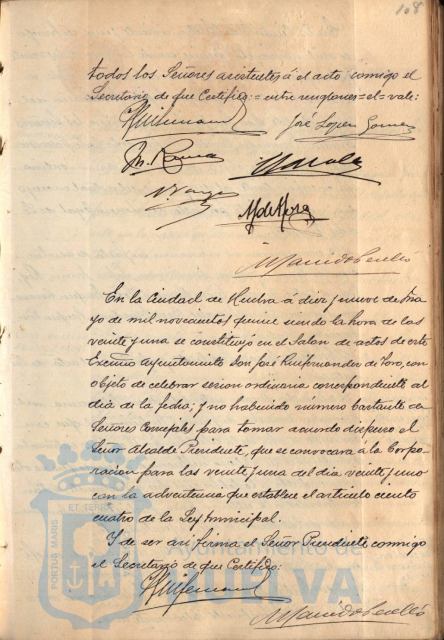 108
todos los Señores asistentes á el acto conmigo el
Secretario de que Certifico:= entre renglones=el=vale:
José Lopez Gomez
M. Romero
En la Ciudad de Huelva á diez y nueve de Ma-
yo de mil novecientos quince siendo la hora de las
veinte y una se constituyó en el Salon de actos de este
Excmo Ayuntamiento Don José Ruifernandez de Toro, con
objeto de celebrar sesion ordinaria correspondiente al
dia de la fecha; y no habiendo número bastante de
Señores Concejales para tomar acuerdo dispuso el
Señor Alcalde Presidente, que se convocara á la Corpo-
racion para las veinte y una del dia veinte y uno
con la advertencia que establece el artículo ciento
cuatro de la Ley Municipal.
Y de ser asi firma el Señor Presidente conmigo
el Secretario de que Certifico:
PORTUS MARIS ET TERRÆ
Ayuntamiento de
HUELVA